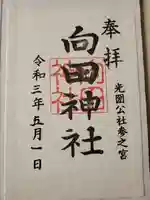 奉拝
光圀公社参之宮
向田神社
令和三年五月一日